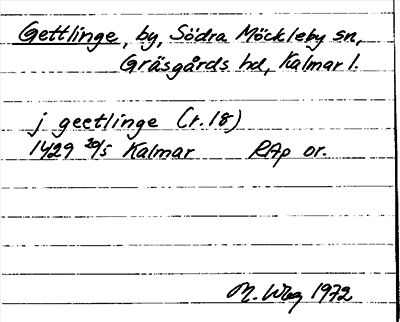 Gettlinge, by, Södra Möckleby sn,
Gräsgårds hd, Kalmar l.
j geetlinge (r. 18)
1429 20/5 Kalmar RAp or.
M. Wbg 1972